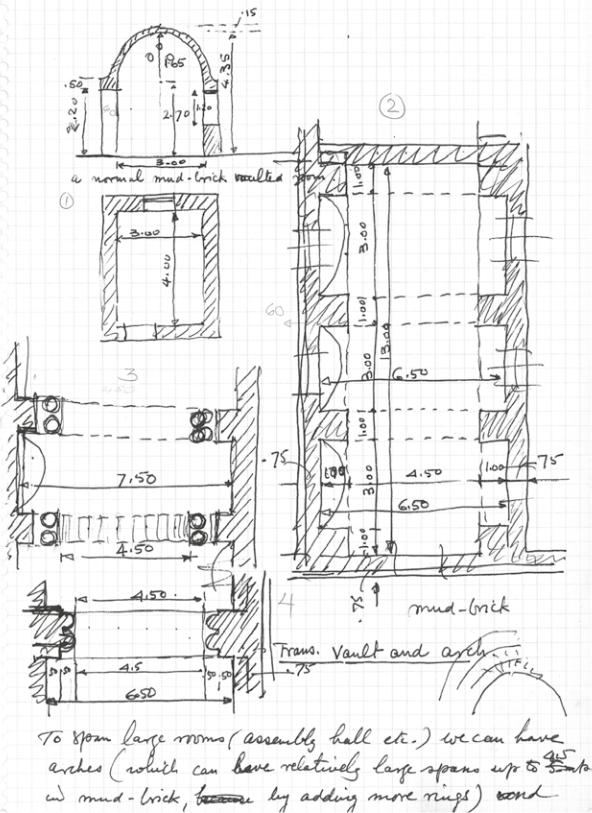 .15
P65
.50
2.20
2.70
1.20
4.35
3.00
a normal mud-brick vaulted room
①
3.00
4.00
②
1.00
3.00
60
1.00
3.00
13.00
6.50
1.00
.75
1.00
3.00
4.50
1.00
.75
6.50
1.00
.75
mud-brick
3
7.50
4.50
4
4.50
4.5
.50
.50
.50
.50
.75
6.50
Trans. Vault and arch.
To span large rooms (assembly hall etc.) we can have
arches (which can have relatively large spans up to 4.5
in mud-brick, by adding more rings) and